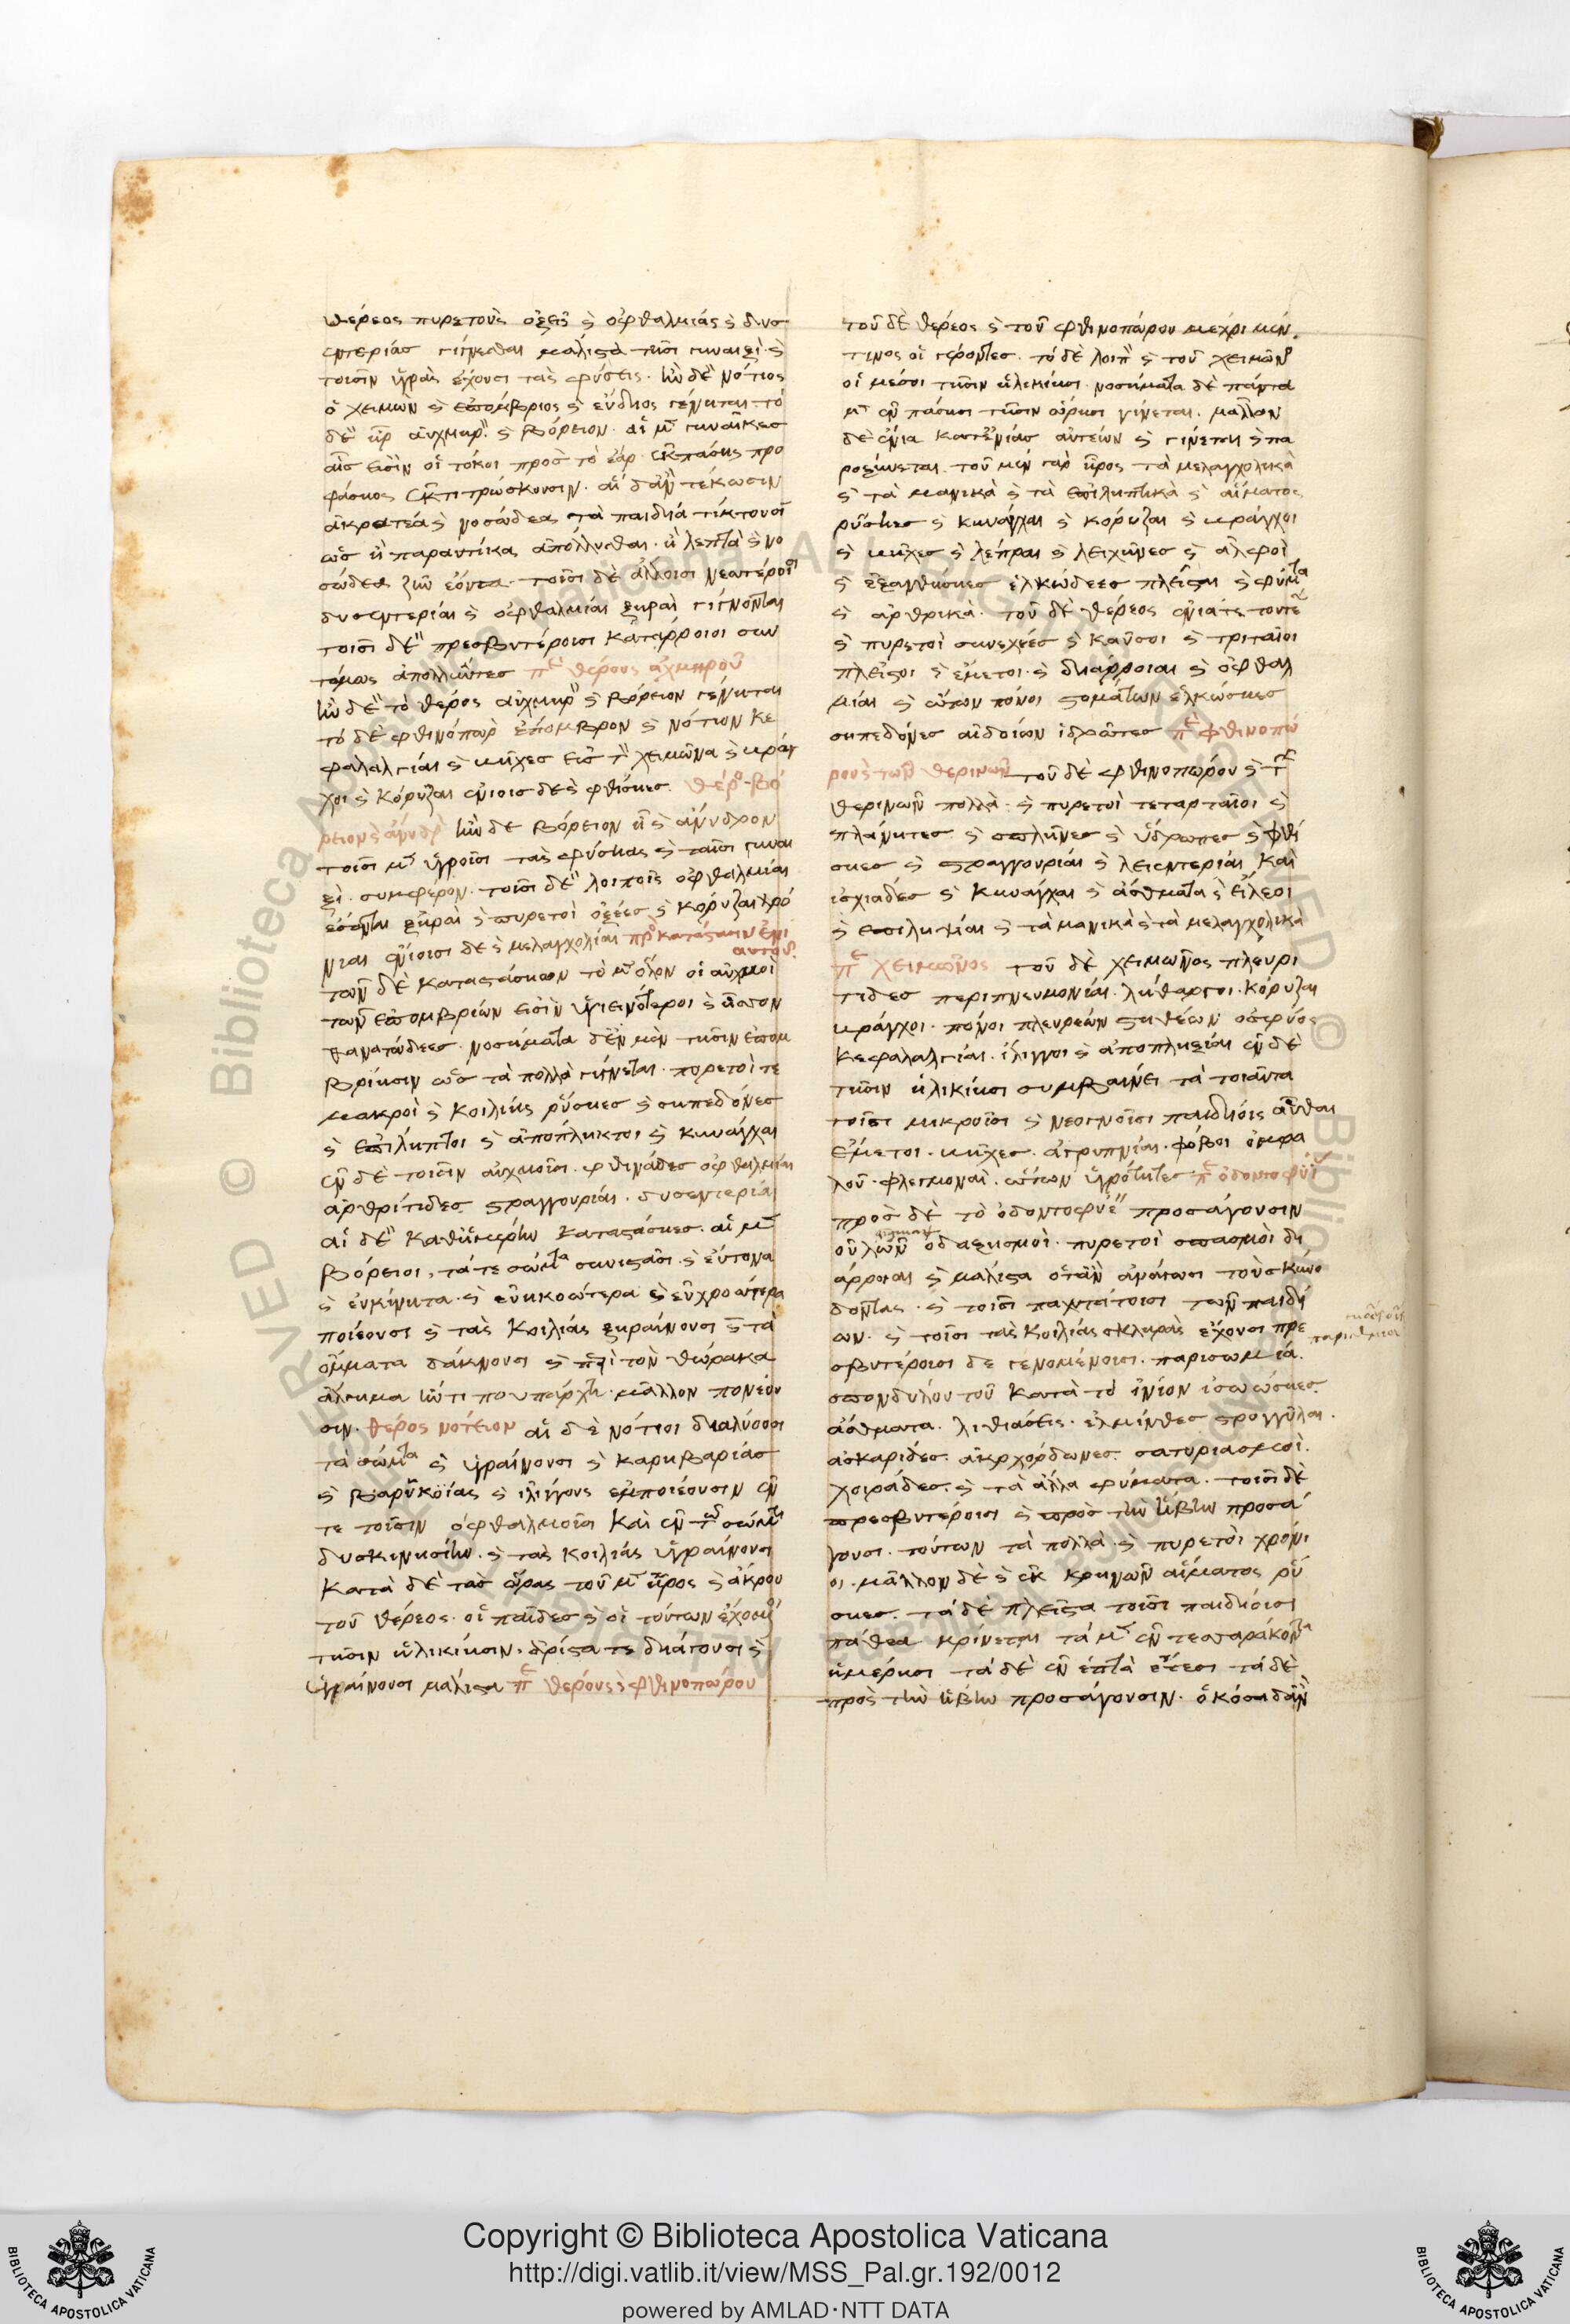 θέρεος πυρετοὺς ὀξεῖς καὶ ὀφθαλμίας καὶ δυσ
εντερίας γίγνεσθαι μάλιστα τῆσι γυναιξὶ καὶ
τοῖσιν ὑγρὰς ἔχουσι τὰς φύσεις. ἢν δὲ νότιος
ὁ χειμὼν καὶ ἔπομβριος καὶ εὔδιος γένηται τὸ
δὲ ἦρ αὐχμηρὸν καὶ βόρειον. αἱ μὲν γυναῖκες
αἷς εἰσὶν οἱ τόκοι πρὸς τὸ ἔαρ. ἐκ πάσης προ
φάσιος ἐκτιτρώσκουσιν. αἳ δ' ἂν τέκωσιν
ἀκρατέα καὶ νοσώδεα τὰ παιδία τίκτουσι
ὡς ἢ παραυτίκα ἀπόλλυσθαι. ἢ λεπτὰ καὶ νο
σώδεα ζῆν ἐόντα. τοῖσι δὲ ἄλλοισι νεωτέροισι
δυσεντερίαι καὶ ὀφθαλμίαι ξηραὶ γίγνονται
τοῖσι δὲ πρεσβυτέροισι κατάρροιοι συν
τόμως ἀπολλῦντες περὶ θέρους αὐχμηροῦ
ἢν δὲ τὸ θέρος αὐχμηρὸν καὶ βόρειον γένηται
τὸ δὲ φθινόπωρον ἔπομβρον καὶ νότιον κε
φαλαλγίαι καὶ βῆχες εἰς τὸν χειμῶνα καὶ βράγ
χοι καὶ κόρυζαι ἐνίοις δὲ καὶ φθίσιες. θέρος βό
ρειον καὶ ἄνυδρον ἢν δὲ βόρειον ᾖ καὶ ἄνυδρον
τοῖσι μὲν ὑγροῖσι τὰς φύσιας καὶ ταῖσι γυναι
ξὶ. συμφέρον. τοῖσι δὲ λοιποῖς ὀφθαλμίαι
ἔσονται ξηραὶ καὶ πυρετοὶ ὀξέες καὶ κόρυζαι χρό
νιαι ἐνίοισι δὲ καὶ μελαγχολίαι πρὸς κατάστασιν ἐνι
αυτοῦ.
τῶν δὲ καταστάσιων τὸ μὲν ὅλον οἱ αὐχμοὶ
τῶν ἐπομβριῶν εἰσὶν ὑγιεινότεροι καὶ ἧσσον
θανατώδεες. νοσήματα δ' ἐν μὲν τῆσιν ἐπομ
βρίῃσιν ὡς τὰ πολλὰ γίνεται. πυρετοί τε
μακροὶ καὶ κοιλίης ῥύσιες καὶ σηπεδόνες
καὶ ἐπίληπτοι καὶ ἀπόπληκτοι καὶ κυνάγχαι
ἐν δὲ τοῖσιν αὐχμοῖσι. φθινάδες ὀφθαλμίαι
ἀρθρίτιδες στραγγουρίαι. δυσεντερίαι
αἱ δὲ καθημέρην καταστάσιες. αἱ μὲν
βόρειοι, τά τε σώματα συνιστᾶσι καὶ εὔτονα
καὶ εὐκίνητα. καὶ εὐηκοώτερα καὶ εὐχροώτερα
ποιέουσι καὶ τὰς κοιλίας ξηραίνουσι καὶ τὰ
ὄμματα δάκνουσι καὶ περὶ τὸν θώρακα
ἄλγημα ἤν τι προυπάρχῃ. μᾶλλον πονέου
σιν. θέρος νότειον αἱ δὲ νότιοι διαλύουσι
τὰ σώματα καὶ ὑγραίνουσι καὶ καρηβαρίας
καὶ βαρυηκοΐας καὶ ἰλίγγους ἐμποιέουσιν ἐν
τε τοῖσιν ὀφθαλμοῖσι καὶ ἐν τοῖς σώμασι
δυσκινησίην. καὶ τὰς κοιλίας ὑγραίνουσι
κατὰ δὲ τὰς ὥρας τοῦ μὲν ἦρος καὶ ἄκρου
τοῦ θέρεος. οἱ παῖδες καὶ οἱ τούτων ἐχόμενοι
τῆσιν ἡλικίῃσιν. ἄριστά τε διάγουσι καὶ
ὑγιαίνουσι μάλιστα περὶ θέρους καὶ φθινοπώρου
τοῦ δὲ θέρεος καὶ τοῦ φθινοπώρου μέχρι μέν
τινος οἱ γέροντες. τὸ δὲ λοιπὸν καὶ τοῦ χειμῶνος
οἱ μέσοι τῆσιν ἡλικίῃσι. νοσήματα δὲ πάντα
μὲν ἐν πάσῃσι τῆσιν ὥρῃσι γίνεται. μᾶλλον
δὲ ἔνια κατ' ἐνίας αὐτέων καὶ γίνεται καὶ πα
ροξύνεται. τοῦ μὲν γὰρ ἦρος τὰ μελαγχολικὰ
καὶ τὰ μανικὰ καὶ τὰ ἐπιληπτικὰ καὶ αἵματος
ῥύσιες καὶ κυνάγχαι καὶ κόρυζαι καὶ βράγχοι
καὶ βῆχες καὶ λέπραι καὶ λειχῆνες καὶ ἀλφοὶ
καὶ ἐξανθήσιες ἑλκώδεες πλεῖσται καὶ φύματα
καὶ ἀρθρικὰ. τοῦ δὲ θέρεος ἔνιά τε τουτέων
καὶ πυρετοὶ συνεχέες καὶ καῦσοι καὶ τριταῖοι
πλεῖστοι καὶ ἔμετοι. καὶ διάρροιαι καὶ ὀφθαλ
μίαι καὶ ὤτων πόνοι στομάτων ἑλκώσιες
σηπεδόνες αἰδοίων ἱδρῶτες περὶ φθινοπώ
ρου καὶ τῶν θερινῶν τοῦ δὲ φθινοπώρου καὶ τῶν
θερινῶν πολλὰ. καὶ πυρετοὶ τεταρταῖοι καὶ
πλάνητες καὶ σπλῆνες καὶ ὕδρωπες καὶ φθί
σιες καὶ στραγγουρίαι καὶ λειεντερίαι καὶ
ἰσχιάδες καὶ κυνάγχαι καὶ ἄσθματα καὶ εἰλεοὶ
καὶ ἐπιληψίαι καὶ τὰ μανικὰ καὶ τὰ μελαγχολικὰ
περὶ χειμῶνος τοῦ δὲ χειμῶνος πλευρί
τιδες περιπνευμονίαι. λήθαργοι. κόρυζαι
βράγχοι. πόνοι πλευρέων στηθέων ὀσφύος
κεφαλαλγίαι. ἴλιγγοι καὶ ἀποπληξίαι ἐν δὲ
τῆσιν ἡλικίῃσι συμβαίνει τὰ τοιαῦτα
τοῖσι μικροῖσι καὶ νεογνοῖσι παιδίοις ἄφθαι
ἔμετοι. βῆχες. ἀγρυπνίαι. φόβοι ὀμφα
λοῦ. φλεγμοναὶ. ὤτων ὑγρότητες περὶ ὀδοντοφυΐ
πρὸς δὲ τὸ ὀδοντοφυεῖν προσάγουσιν
οὔλων ὀδαξησμοὶ. πυρετοὶ σπασμοὶ δι
άρροιαι καὶ μάλιστα ὅταν ἀνάγωσι τοὺς κυνό
δοντας. καὶ τοῖσι παχυτάτοισι τῶν παιδί
ων. καὶ τοῖσι τὰς κοιλίας σκληρὰς ἔχουσι πρε
σβυτέροισι δὲ γενομένοισι. παρίσθμια.
σπονδύλου τοῦ κατὰ τὸ ἰνίον εἰσώσιες.
ἄσθματα. λιθιάσεις. ἕλμινθες στρογγύλαι.
ἀσκαρίδες. ἀκροχόρδωνες. σατυριασμοὶ.
χοιράδες. καὶ τὰ ἄλλα φύματα. τοῖσι δὲ
πρεσβυτέροισι καὶ πρὸς τὴν ἥβην προσά
γουσι. τούτων τὰ πολλὰ. καὶ πυρετοὶ χρόνι
οι. μᾶλλον δὲ καὶ ἐκ ῥινῶν αἵματος ῥύ
σιες. τὰ δὲ πλεῖστα τοῖσι παιδίοισι
πάθεα κρίνεται τὰ μὲν ἐν τεσσαράκοντα
ἡμέρῃσι τὰ δὲ ἐν ἑπτὰ ἔτεσι τὰ δὲ
πρὸς τὴν ἥβην προσάγουσιν. ὁκόσα δ' ἂν
Copyright © Biblioteca Apostolica Vaticana
http://digi.vatlib.it/view/MSS_Pal.gr.192/0012
powered by AMLAD·NTT DATA
BIBLIOTECA APOSTOLICA VATICANA
BIBLIOTECA APOSTOLICA VATICANA